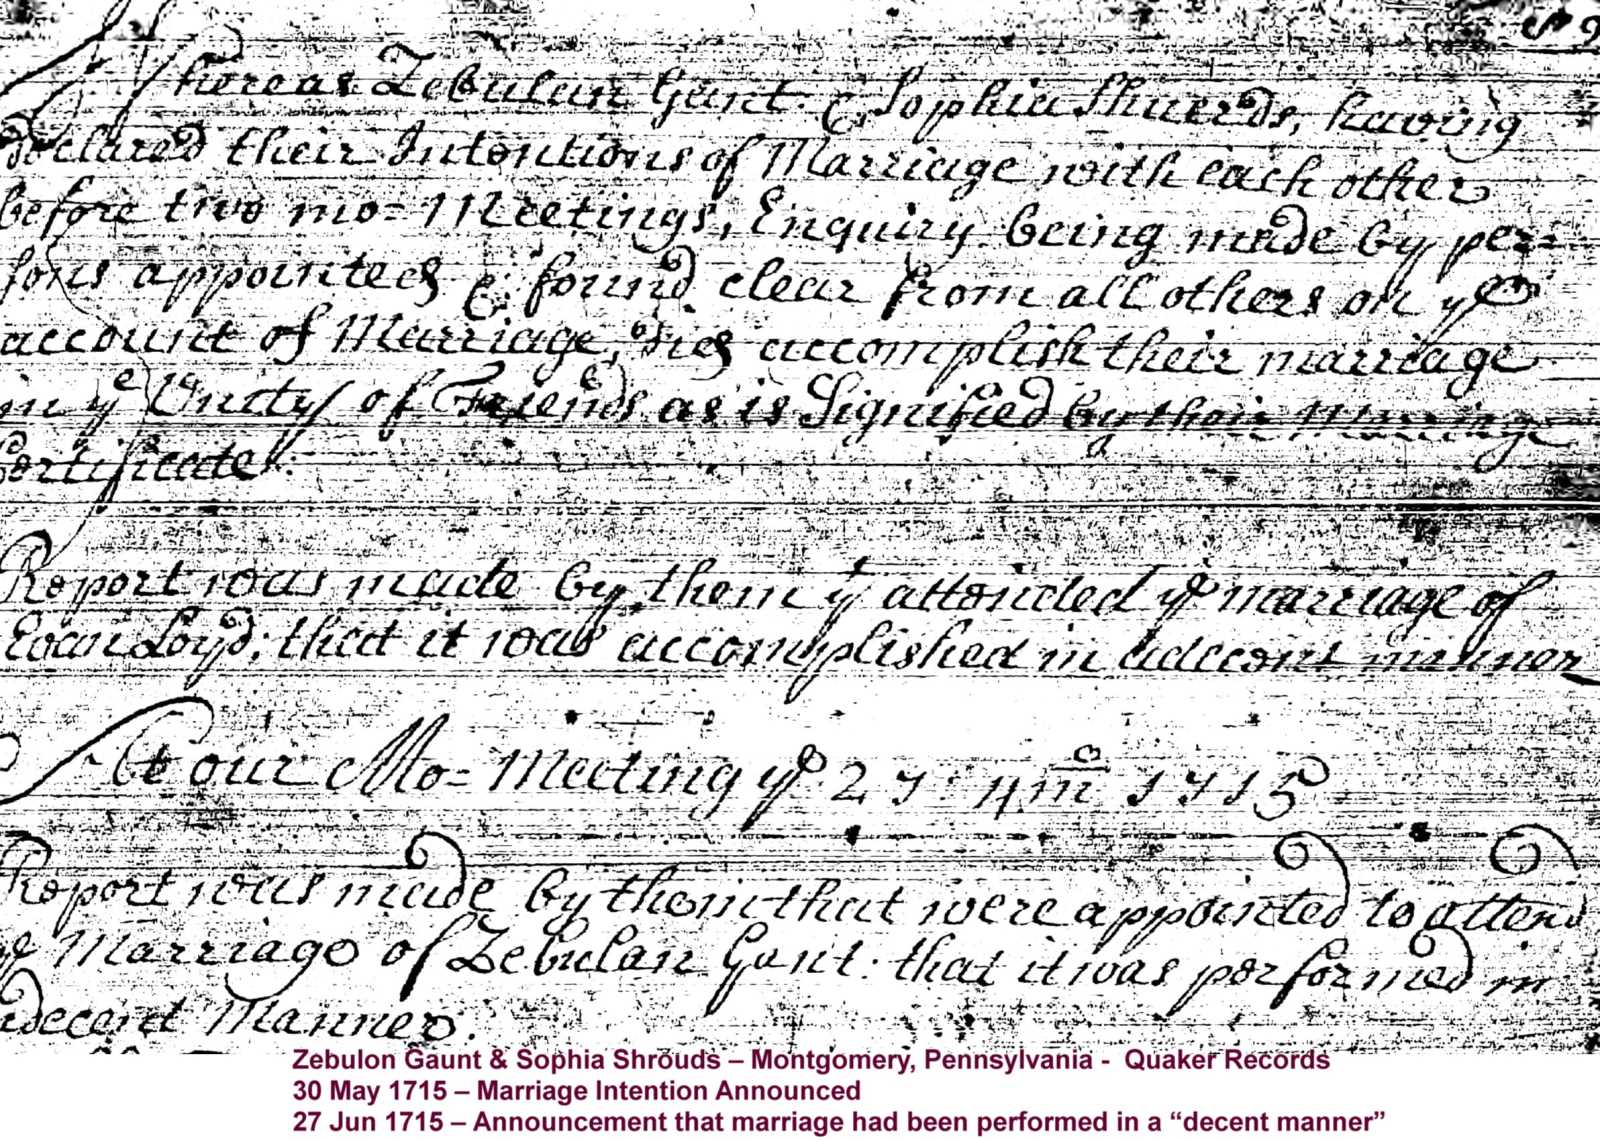 Whereas Zebulan Gant & Sophia Shuerds, having
declared their Intentions of Marriage with each other
before two mo= Meetings, Enquiry being made by per=
sons appointed & found clear from all others on ye
account of Marriage, did accomplish their marriage
in ye Unity of Friends as is Signified by their Marriage
Certificate.
Report was made by them yt attended ye marriage of
Evan Loyd; that it was accomplished in a decent manner
At our Mo= Meeting ye 27: 4mo 1715
Report was made by them that were appointed to attend
ye Marriage of Zebulan Gant: that it was performed in
a decent Manner.
Zebulon Gaunt & Sophia Shrouds – Montgomery, Pennsylvania - Quaker Records
30 May 1715 – Marriage Intention Announced
27 Jun 1715 – Announcement that marriage had been performed in a “decent manner”